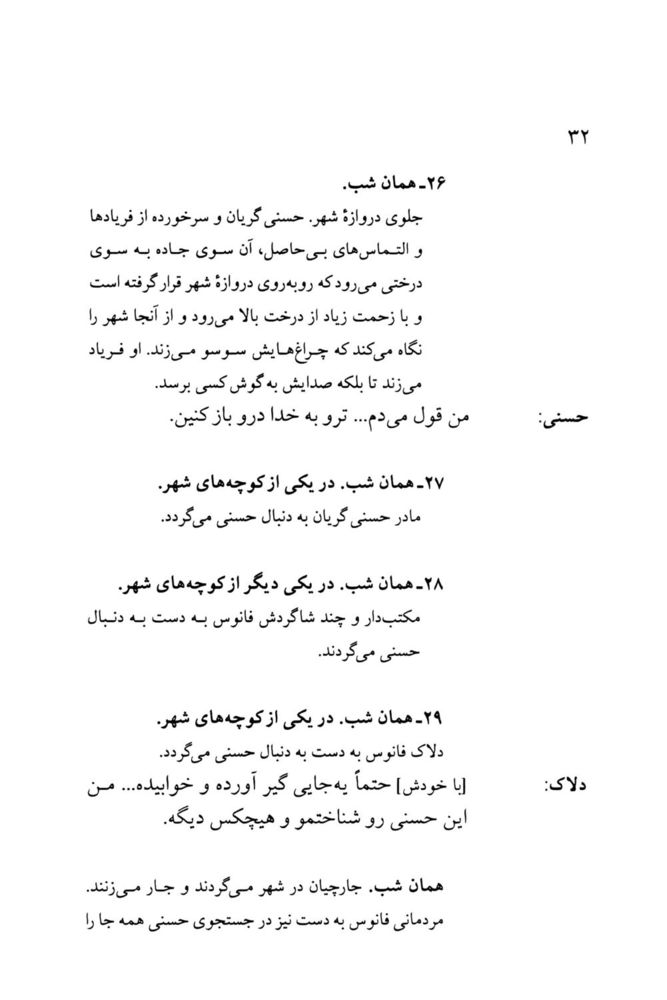 ۳۲
۲۶ـ همان شب.
جلوی دروازهٔ شهر. حسنی گریان و سرخورده از فریادها
و التماس‌های بی‌حاصل، آن سوی جاده به سوی
درختی می‌رود که روبه‌روی دروازهٔ شهر قرار گرفته است
و با زحمت زیاد از درخت بالا می‌رود و از آنجا شهر را
نگاه می‌کند که چراغ‌هایش سوسو می‌زند. او فریاد
می‌زند تا بلکه صدایش به گوش کسی برسد.
حسنی: من قول می‌دم... ترو به خدا درو باز کنین.
۲۷ـ همان شب. در یکی از کوچه‌های شهر.
مادر حسنی گریان به دنبال حسنی می‌گردد.
۲۸ـ همان شب. در یکی دیگر از کوچه‌های شهر.
مکتب‌دار و چند شاگردش فانوس به دست به دنبال
حسنی می‌گردند.
۲۹ـ همان شب. در یکی از کوچه‌های شهر.
دلاک فانوس به دست به دنبال حسنی می‌گردد.
دلاک: [با خودش] حتماً یه‌جایی گیر آورده و خوابیده... من
این حسنی رو شناختمو و هیچکس دیگه.
همان شب. جارچیان در شهر می‌گردند و جار می‌زنند.
مردمانی فانوس به دست نیز در جستجوی حسنی همه جا را